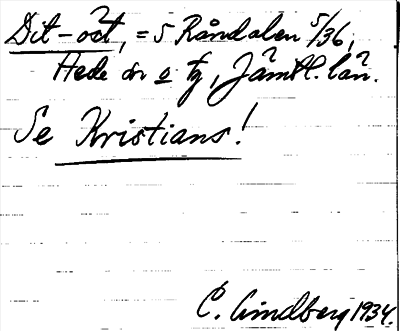 Dit-ọət, = 5 Råndalen 5/36,
Hede sn o tg, Jämtl. län.
Se Kristians!
C. Lindberg 1934.